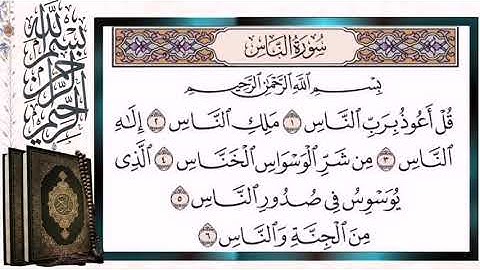 بسم الله الرحمن الرحيم
سُورَةُ النَّاسِ
بِسْمِ اللَّهِ الرَّحْمَٰنِ الرَّحِيمِ
قُلْ أَعُوذُ بِرَبِّ النَّاسِ ١ مَلِكِ النَّاسِ ٢ إِلَٰهِ
النَّاسِ ٣ مِن شَرِّ الْوَسْوَاسِ الْخَنَّاسِ ٤ الَّذِي
يُوَسْوِسُ فِي صُدُورِ النَّاسِ ٥
مِنَ الْجِنَّةِ وَالنَّاسِ ٦